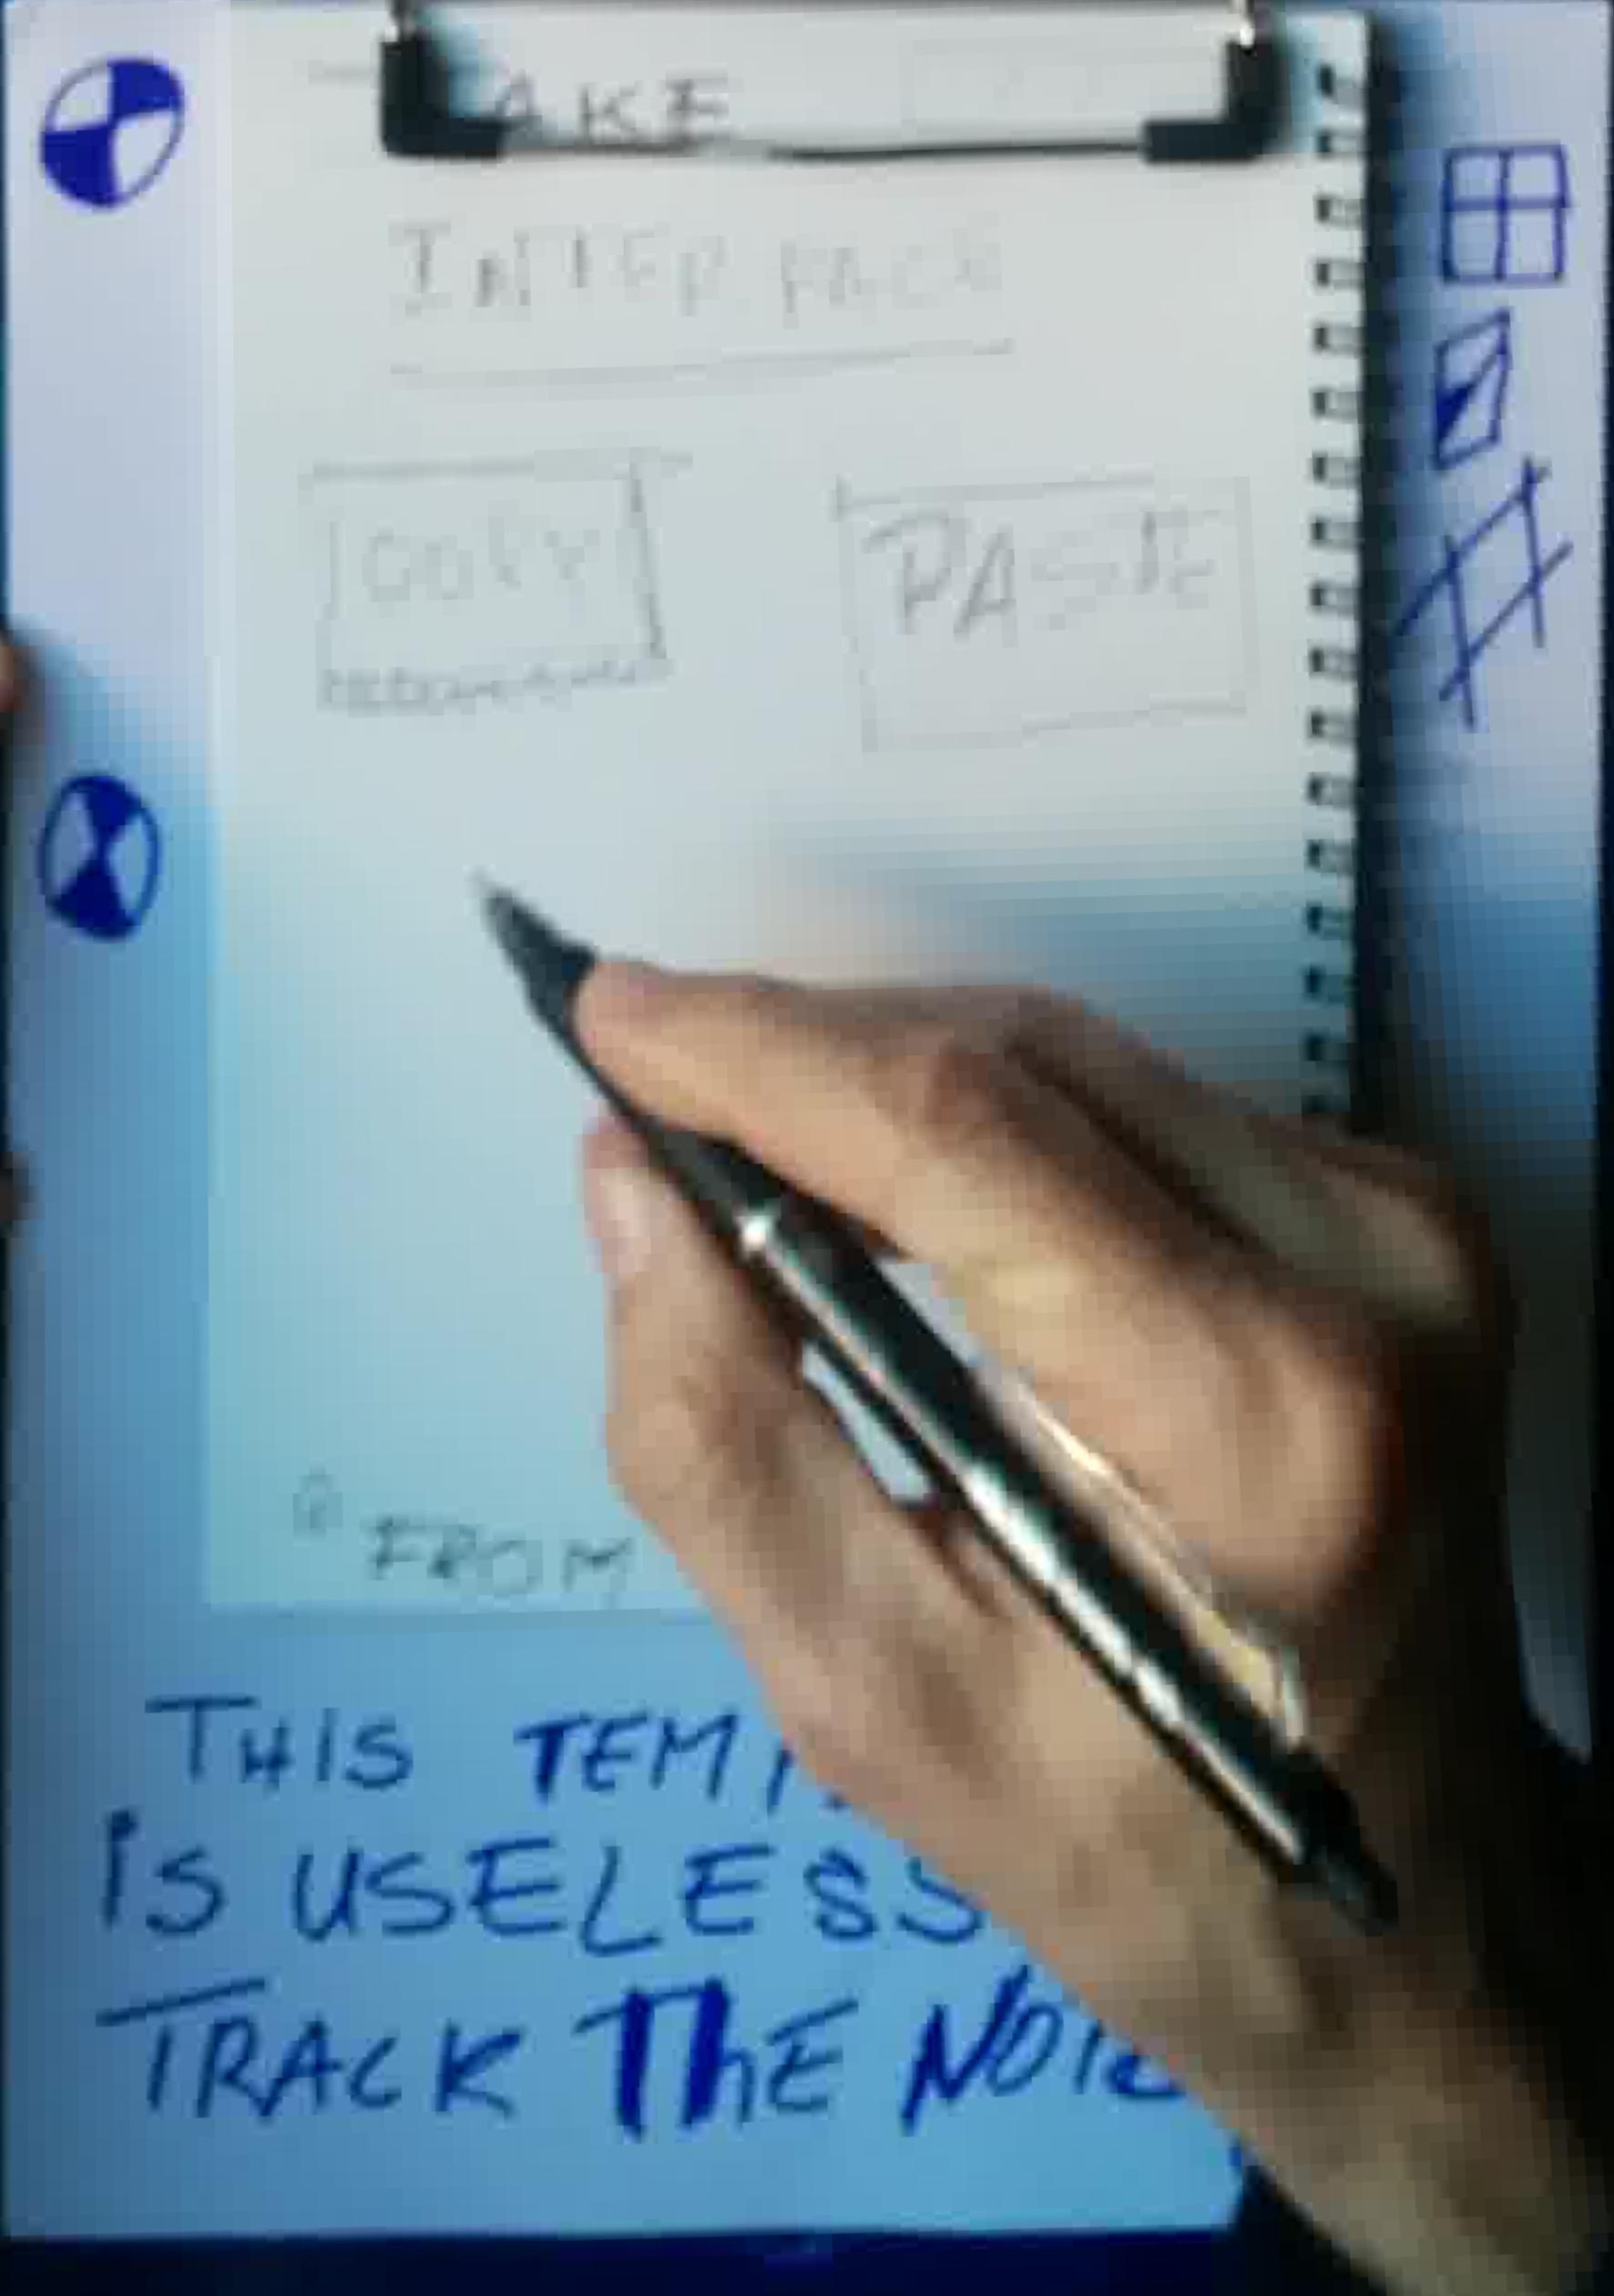 AKE
INTERFACE
COPY PASTE
FROM
THIS TEMP
IS USELESS
TRACK THE